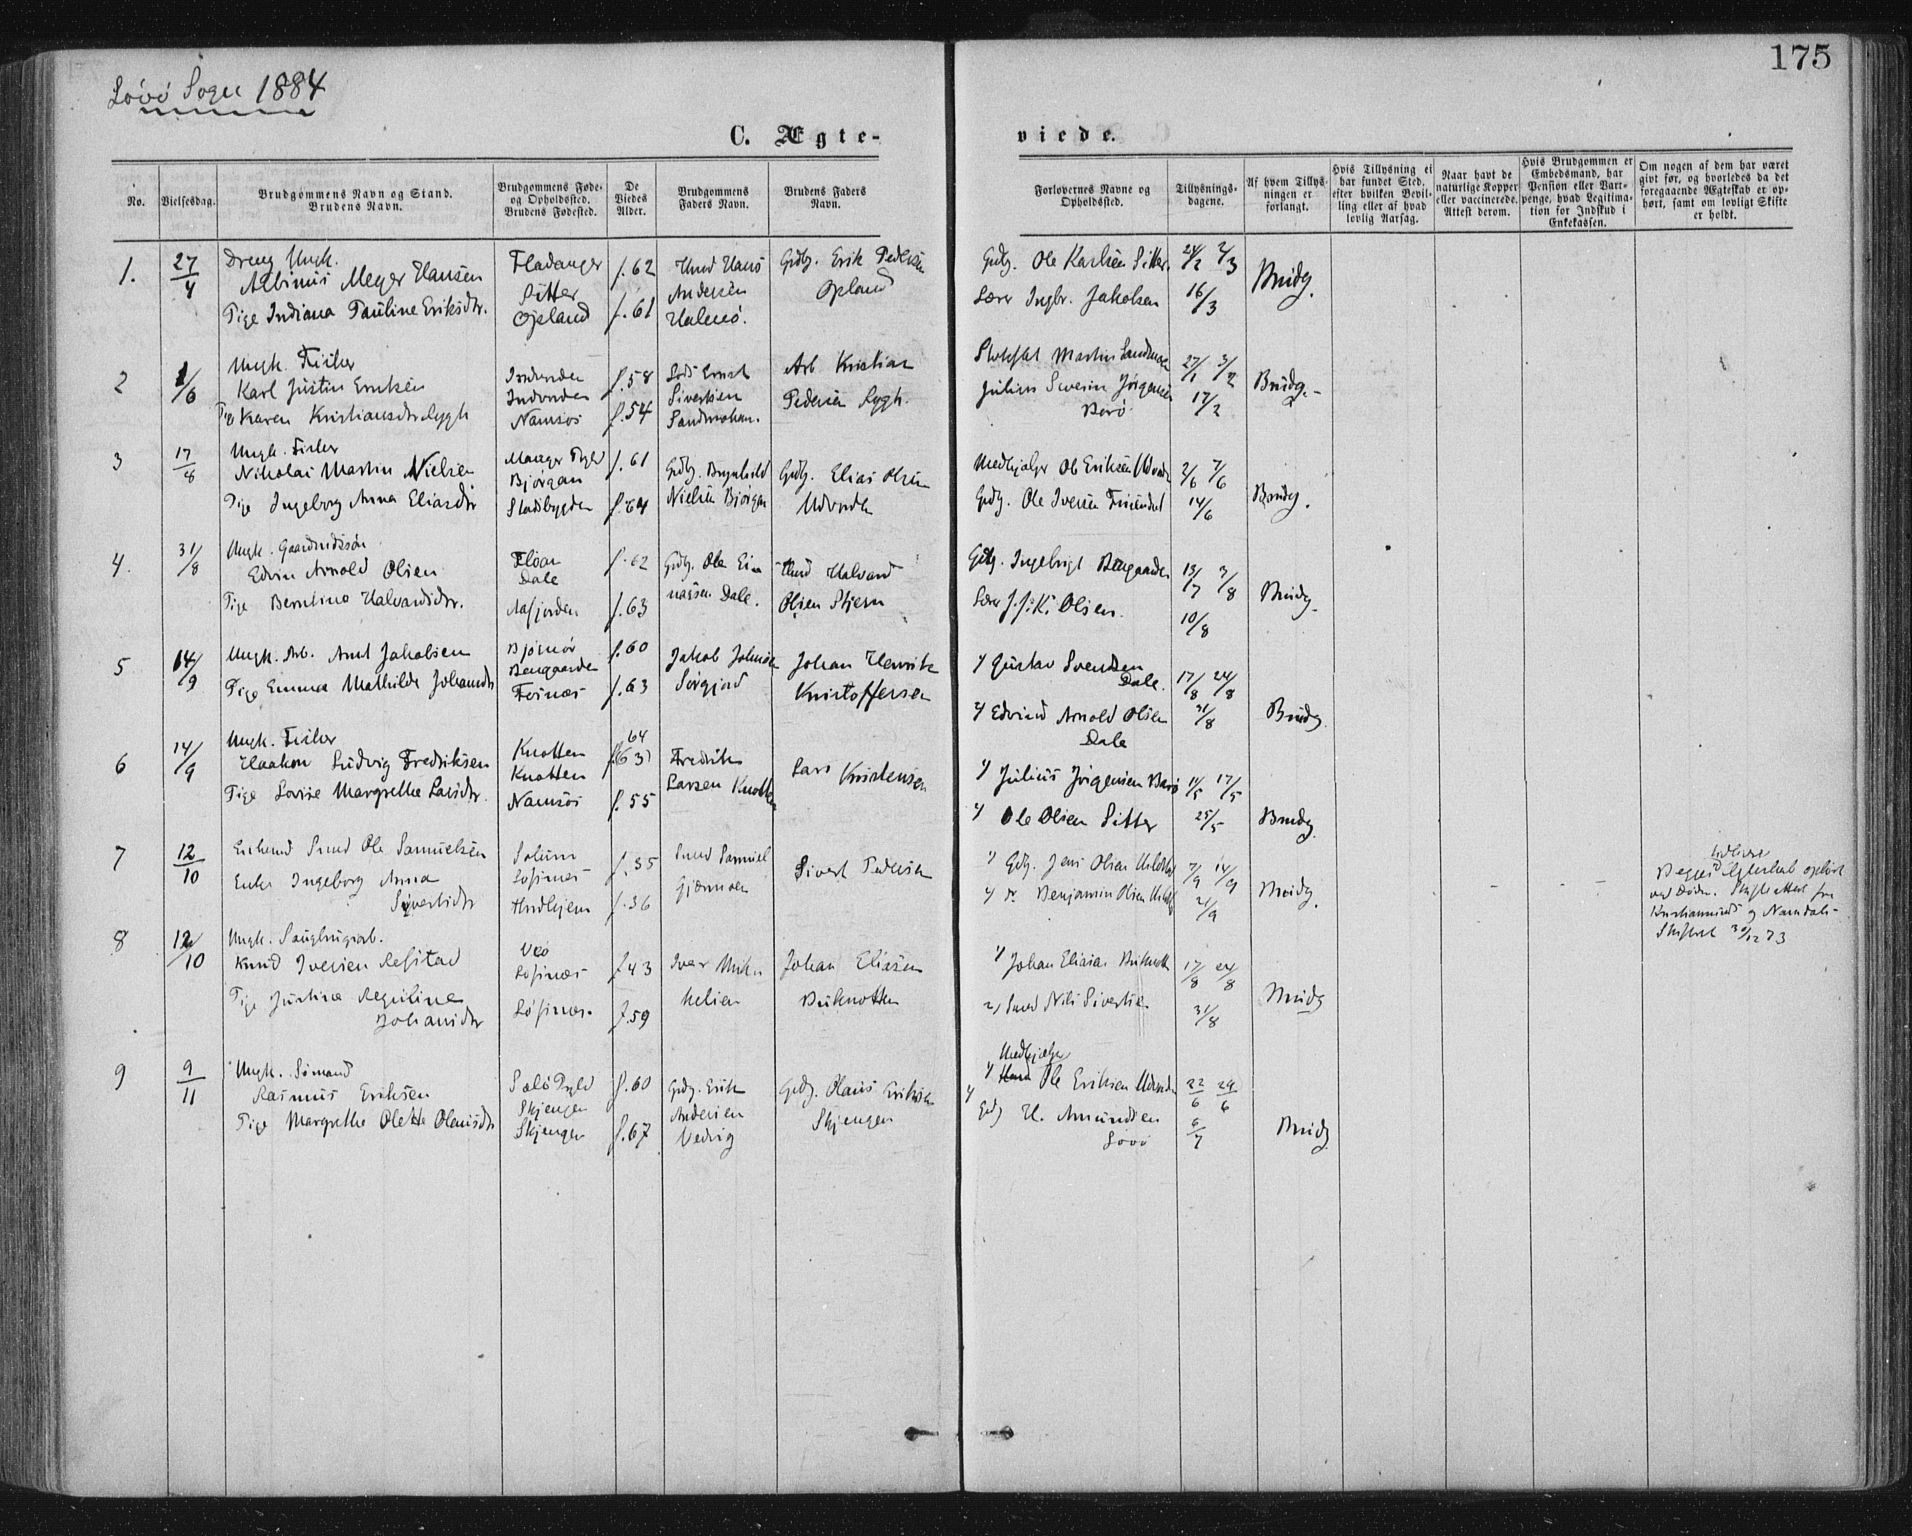 175
Lövö Sogn 1884
C. Ægte-
viede.
No.
Vielsesdag.
Brudgommens Navn og Stand.
Brudens Navn.
Brudgommens Føde-
og Opholdssted.
Brudens Fødested.
De
Viedes
Alder.
Brudgommens
Faders Navn.
Brudens Faders
Navn.
Forlovernes Navne og
Opholdssted.
Tillysnings-
dagene.
Af hvem Tillys-
ningen er
forlangt.
Hvis Tillysning ei
har fundet Sted,
efter hvilken Bevil-
ling eller af hvad
lovlig Aarsag.
Naar havt de
naturlige Kopper
eller vaccinerede.
Attest derom.
Hvis Brudgommen er
Embedsmand, har
Pension eller Vart-
penge, hvad Legitima-
tion for Indskud i
Enkekassen.
Om nogen af dem har været
givt før, og hvorledes da det
foregaaende Ægteskab er op-
hørt, samt om lovligt Skifte
er holdt.
1. 27/4
Dreng Ungk.
Albinus Meyer Hansen
Pige Indiana Pauline Eriksdtr.
Fladanger
Sitter
Opland
f. 62
f. 61
Hmd Hans
Andersen
Halmö.
Grdbg. Erik Pedersen
Opland
Grdbg. Ole Karlsen Sitter.
Lærer Ingbr. Jakobsen
24/2 2/3
16/3
Brudg.
2 1/6
Ungk. Fisker
Karl Justin Erntsen
Pige Karen Kristiansdtr Rygh
Indvorden
Namsos
f. 58
f. 54
Ernst
Sivertsen
Arb Kristian
Pedersen Rygh.
Martin Sandmoen
Julius Severin Jörgensen
Borö.
27/1 3/2
17/2
Brudg.
3 17/8
Ungk. Fisker
Nikolai Martin Nielsen
Pige Ingeborg Anna Eliasdtr
Bjørgan
Stadsbygden
f. 61
f. 64
Nielsen Bjørgan
Grdbg. Elias Olsen
Utvorda
Medhjælper Ole Eriksen Utvorda
Grdbg. Ole Iversen
2/6 7/6
14/6
Brudg.
4. 31/8
Ungk. Gaardmdssøn
Edvin Arnold Olsen
Pige Berntine Halvardsdtr.
Floan
Dale
Aafjorden
f. 62
f. 63
Grdbg. Ole Ei-
narsen Dale.
Hmd Halvard
Olsen Stjern
Grdbg. Ingebrigt Bragaarden
Lærer J. J. K. Olsen.
13/7 3/8
10/8
Brudg.
5 14/9
Ungk. Arb. Arnt Jakobsen
Pige Emma Mathilde Johansdtr
Bjørnør
Fosnæs
f. 60
f. 63
Jakob Johnsen
Sørgjord
Johan Henrik
Kristoffersen
1/ Gustav Svendsen
Dale.
2/ Edvind Arnold Olsen
Dale
17/8 24/8
31/8
Brudg.
6 14/9
Ungk. Fisker
Haakon Ludvig Fredriksen
Pige Lovise Margrethe Larsdtr.
Knotten
Knotten
Namsos
64
f. (63)
f. 55
Fredrik
Larsen Knotten
Lars Kristensen
1/ Julius Jörgensen Borö
2/ Ole Olsen Sitter
11/5 17/5
25/5
Brudg.
7 12/10
Enkemd Smed Ole Samuelsen
Enke Ingeborg Anna
Sivertsdtr
Solum
f. 35
f. 36
Smed Samuel
Gjærmoen
Sivert Pedersen
1/ Grdbg. Jens Olsen
2/ do Benjamin Olsen
7/9 14/9
21/9
Brudg.
- - -
Begges tidligere Ægteskab ophørt
ved Døden. Skifteattest fra
Kristiansunds og Namdals-
Skifteret 30/12 73
8 12/10
Ungk. Saugbrugsarb.
Knud Iversen Refstad
Pige Justine Regeline
Johansdtr
Veö
f. 43
f. 59
Iver Mik-
kelsen
Johan Eliasen
Buknotten
1/ Johan Eliasen Buknotten
2/ Smed Nils Sivertsen
17/8 24/8
31/8
Brudg
9 9/11
Ungk. Sömand
Rasmus Eriksen
Pige Margrethe Olette Olausdtr
Skjengen
Skjengen
f. 60
f. 67
Grdbg. Erik
Andersen
Vedvig
Grdbg. Olaus Eriksen
Skjengen
Medhjælper
1/ Ole Eriksen Utvorda
2/ Grdbg H. Amundsen
Lövö
22/6 29/6
6/7
Brudg